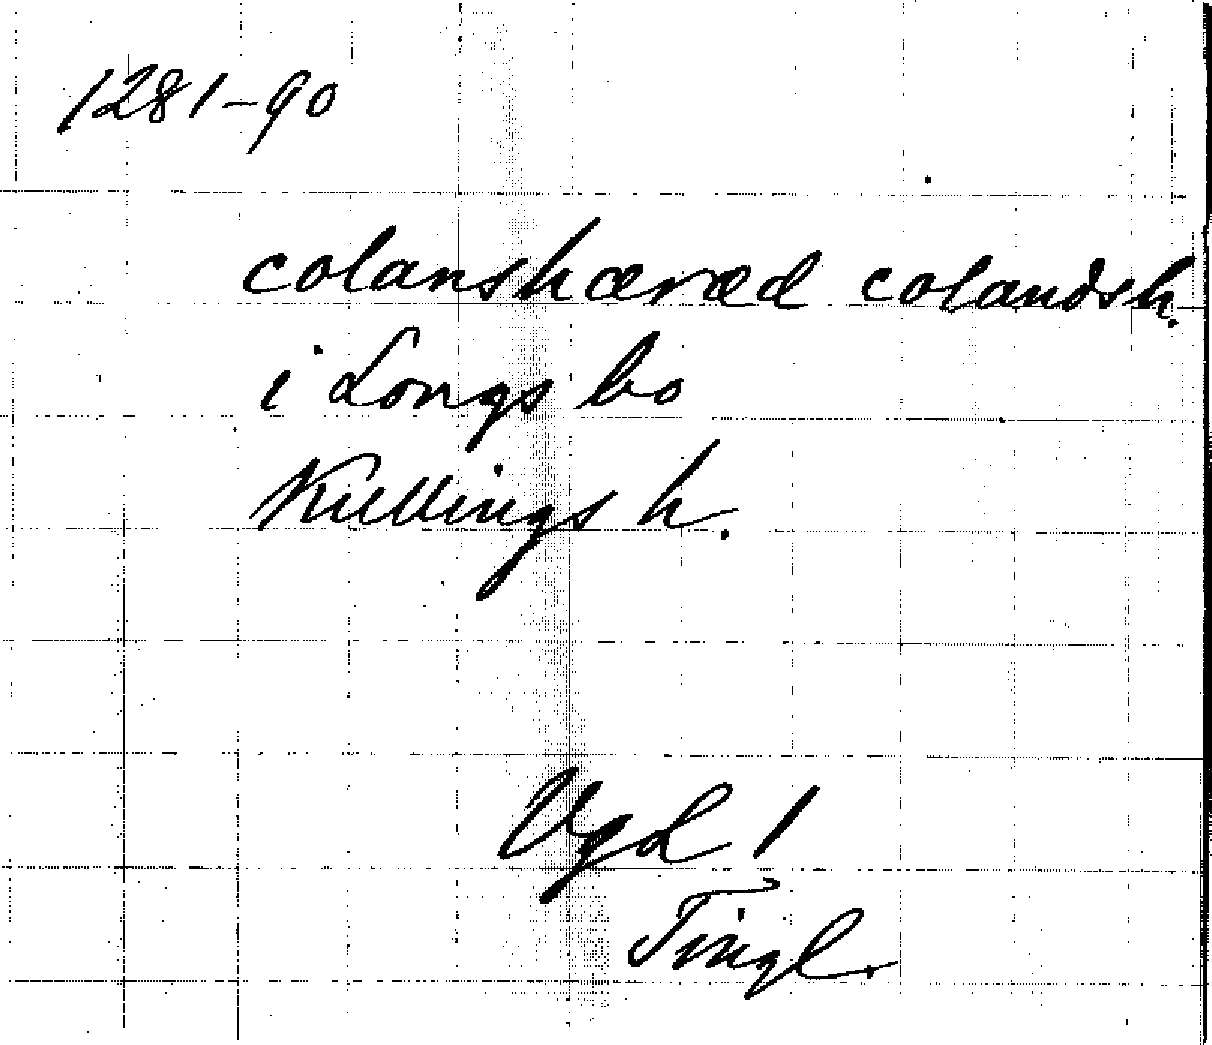 1281-90
colanshæræd colandsh.
i Longs bo
Kullings h.
VgL 1
Tingl.